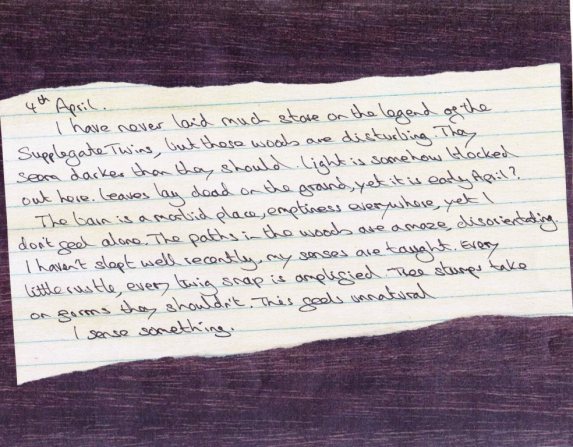 4th April.
I have never laid much store on the legend of the
Supplegate Twins, but these woods are disturbing. They
seem darker than they should. Light is somehow blocked
out here. Leaves lay dead on the ground, yet it is early April?
The barn is a morbid place, emptiness everywhere, yet I
don't feel alone. The paths in the woods are a maze, disorientating.
I haven't slept well recently, my senses are taught. Every
little rustle, every twig snap is amplified. Tree stumps take
on forms they shouldn't. This feels unnatural
I sense something.